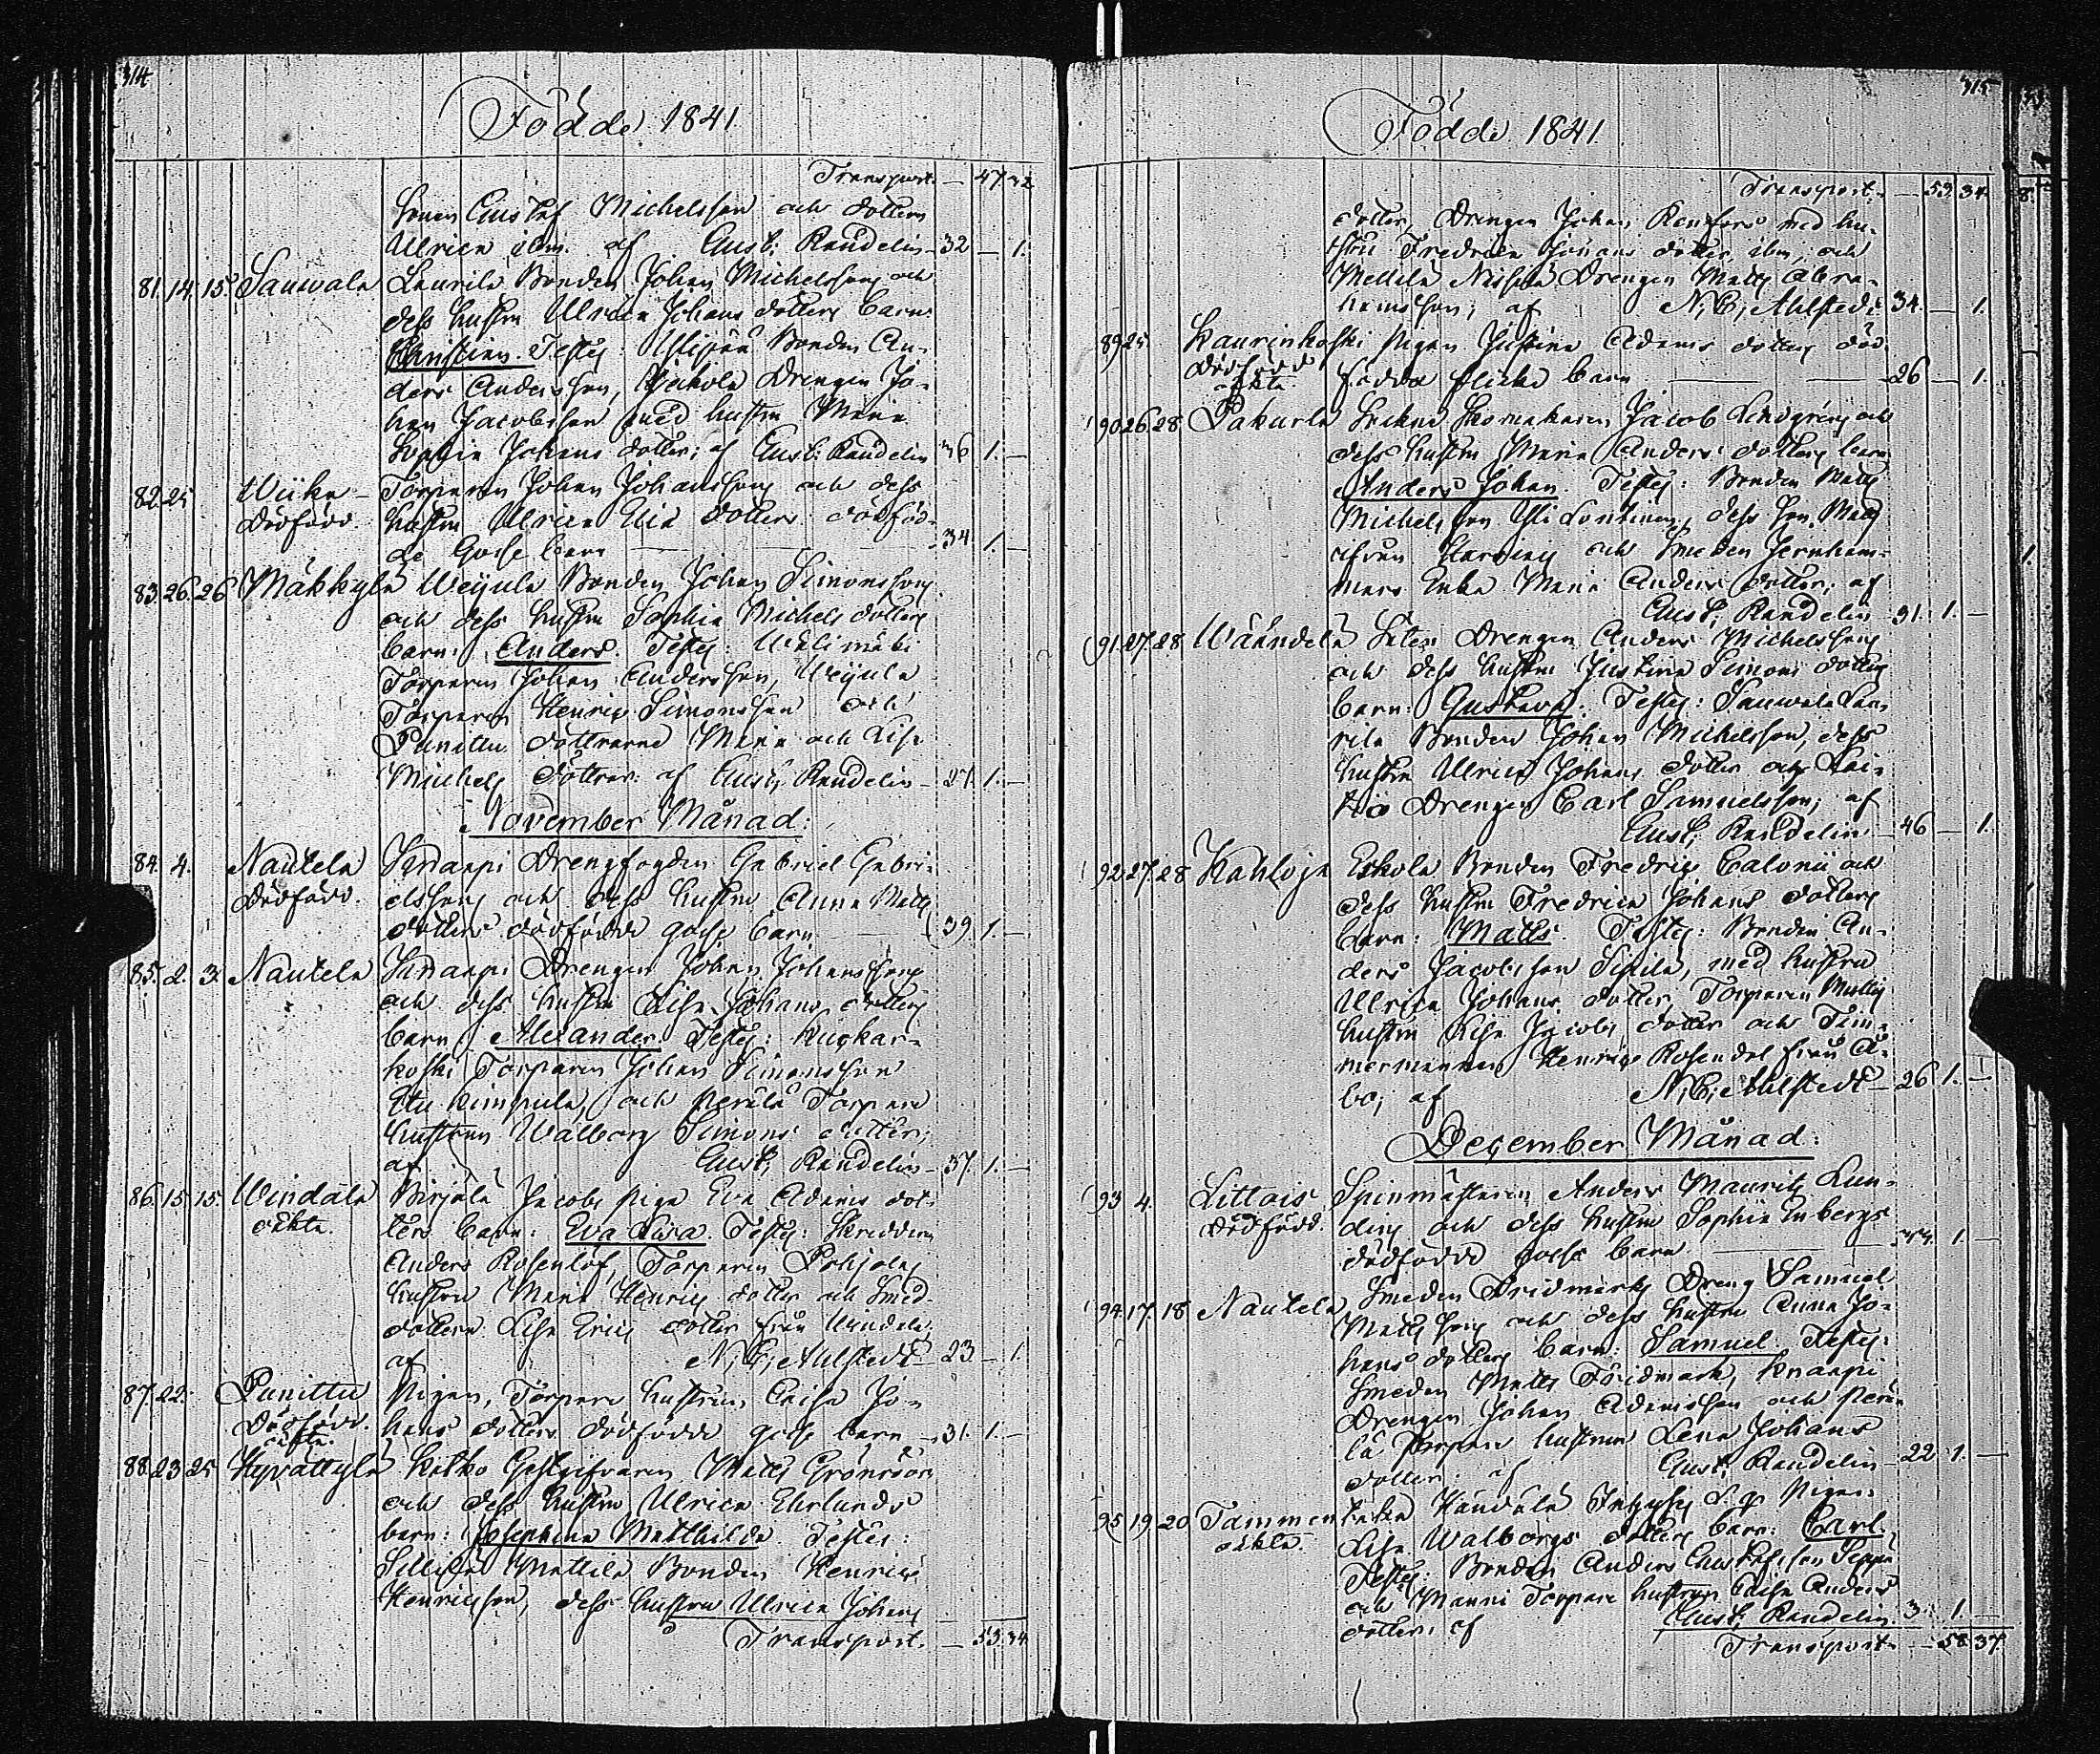 314
Födde 1841
Transport. — 47 32
sonen Gustaf Michelsson och dottern
Ullrica ibm. af Gust: Randelin 32 — 1.
81. 14. 15 Sauwala Laurila Bonden Johan Michelssons och
dess hustru Ulrica Johans dotters barn:
Christian. Testes: Bonden An-
ders Andersson, Drengen Jo-
han Jacobsson med hustru Maria
Sophia Johans dotter; af Gust: Randelin 36 1. —
82. 25 Wiika Torparen Johan Johanssons och dess
Dödfödd. hustru Ulrica Elia dotters dödföd-
de Gosse barn 34 1. —
83. 26. 26 Mäkkylä Weijula Bonden Johan Simonssons
och dess hustru Sophia Michels dotters
barn: Anders. Testes: Wälimäki
Torparen Johan Andersson, Weijula
Torparen Henric Simonsson och
Punittu döttrarne Maria och Lisa
Michels döttrar: af Gust; Randelin 27. 1. —
November Månad:
84. 4. Nautela Knaapi Drengfogden Gabriel Gabri-
Dödfödd. elssons och dess hustru Anna Matts
dotters dödfödde gosse barn 39. 1. —
85. 2. 3. Nautela Knaapi Drengen Johan Johanssons
och dess hustru Lisa Johans dotters
barn: Alexander. Testes: Kuckar-
koski Torparen Johan Simonsson
och Perälä Torpare
hustrun Walborg Simons dotter;
af Gust; Randelin 37. 1. —
86. 15. 15. Windäla Birjälä Jacobs piga Eva Adams dot-
oäkta. ters barn: Eva Lovisa. Testes: Skreddaren
Anders Rosenlöf, Torparen Pohjolas
hustru Maria Henrics dotter och Smed-
dottern Lisa Erics dotter från Windäla;
af N; E; Ahlstedt 23 — 1.
87. 22. Punittu Pigan, Torpare hustrun, Caisa Jo-
Dödfödd. hans dotters dödfödde gosse barn 31. 1. —
oäkta.
88. 23 25 Hyvättylä Katko Gestgifvaren Matts Grönroos
och dess hustru Ulrica Ehrlunds
barn: Josephina Mathilda. Testes:
Sillilä Mattila Bonden Henric
Henricsson, dess hustru Ulrica Johans
Transport. — 53. 34.
315
Födde 1841.
Transport. — 53. 34.
dotter, Drengen Johan Renfors med hu-
stru Fredrica Johans dotter, ibm, och
Mellilä Drengen Matts Abra-
hamsson; af N; E; Ahlstedt 34. — 1.
89 25. Kaurinkoski Pigan Justina Adams dotters död-
Dödfödd födda flicke barn 26 — 1.
oäkta.
90 26 28 Pakurla Sockne Skomakaren Jacob Lindgrens och
dess hustru Maria Anders dotters barn
Anders Johan. Testes: Bonden Matts
Michelsson dess son Matts
och Smeden Jernham-
mars Enka Maria Anders dotter; af
Gust; Randelin 31. 1. —
91. 27. 28 Wääntelä Drengen Anders Michelssons
och dess hustru Justina Simons dotters
barn: Gustava. Testes: Sauwala Lau-
rila Bonden Johan Michelsson, dess
hustru Ulrica Johans dotter och
Drengen Carl Samuelsson; af
Gust; Randelin 46 — 1.
92. 27. 28 Kahloja Eskola Bonden Fredric Calonii och
dess hustru Fredrica Johans dotters
barn: Matts. Testes: Bonden An-
ders Jacobsson Sipilä, med hustru
Ulrica Johans dotter, Torparen Matts
hustru Lisa Jacobs dotter och Tim-
mermannen Henric Rosendal från Å-
bo; af N; E; Ahlstedt 26 1. —
December Månad:
93 4. Littois Spinmästaren Anders Maurits Lun-
Dödfödd. dins och dess hustru Sophia Enbergs
dödfödde gosse barn 1. —
94. 17. 18 Nautela Smeden Fridmarks Dreng Samuel
Matts sons och dess hustru Anna Jo-
hans dotters barn: Samuel. Testes:
Smeden Matts Fridmark, Knaapi
Drengen Johan Adamsson och Perä-
lä Torpare hustrun Lena Johans
dotter; af Gust; Randelin 22 1. —
95 19 20 Tammen Pigan
oäkta. Lisa Walborgs dotters barn: Carl.
Testes: Bonden Anders Gustafsson Seppä
och Manni Torpare hustrun Caisa Anders
dotter. af Gust; Randelin. 1. —
Transport. — 58. 37.